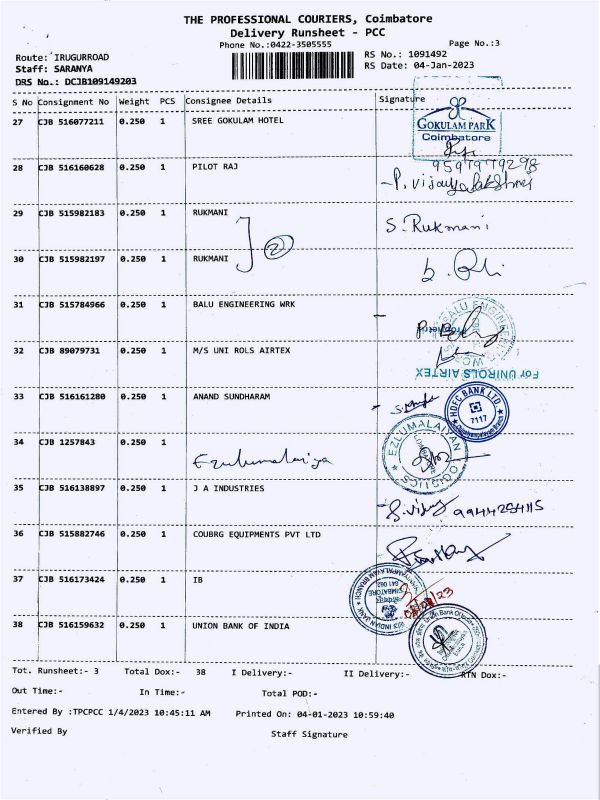 THE PROFESSIONAL COURIERS, Coimbatore
Delivery Runsheet - PCC
Phone No.:0422-3505555
Page No.:3
Route: IRUGURROAD
RS No.: 1091492
Staff: SARANYA
RS Date: 04-Jan-2023
DRS No.: DCJB109149203
S No Consignment No Weight PCS Consignee Details Signature
27 CJB 516077211 0.250 1 SREE GOKULAM HOTEL
GOKULAM PARK
Coimbatore
9597979298
28 CJB 516160628 0.250 1 PILOT RAJ
P. Vijayalakshmi
29 CJB 515982183 0.250 1 RUKMANI
S. Rukmani
2
30 CJB 515982197 0.250 1 RUKMANI
31 CJB 515784966 0.250 1 BALU ENGINEERING WRK
32 CJB 89079731 0.250 1 M/S UNI ROLS AIRTEX
For UNIROLS AIRTEX
33 CJB 516161280 0.250 1 ANAND SUNDHARAM
HDFC BANK LTD.
7117
34 CJB 1257843 0.250 1
Ezulumalaiya
EZLUMALAIYAN LOGISTICS
35 CJB 516138897 0.250 1 J A INDUSTRIES
S. Vijay 9944284115
36 CJB 515882746 0.250 1 COUBRG EQUIPMENTS PVT LTD
37 CJB 516173424 0.250 1 IB
38 CJB 516159632 0.250 1 UNION BANK OF INDIA
Tot. Runsheet:- 3 Total Dox:- 38 I Delivery:- II Delivery:- RTN Dox:-
Out Time:- In Time:- Total POD:-
Entered By :TPCPCC 1/4/2023 10:45:11 AM Printed On: 04-01-2023 10:59:40
Verified By Staff Signature